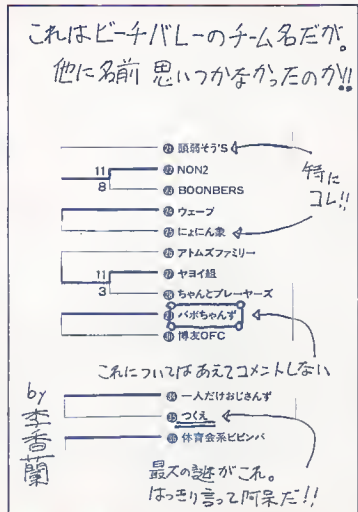 これはビーチバレーのチーム名だが。
他に名前 思いつかなかったのか!!
21 頭弱そう'S
特に
コレ!!
11
22 NON2
8
23 BOONBERS
24 ウェーブ
25 にょにん象
26 アトムズファミリー
11
27 ヤヨイ組
3
28 ちゃんとプレーヤーズ
29 バボちゃんず
30 博友OFC
これについてはあえてコメントしない
34 一人だけおじさんず
35 つくえ
36 体育会系ビビンバ
by 李香蘭
最大の謎がこれ。
はっきり言って阿呆だ!!